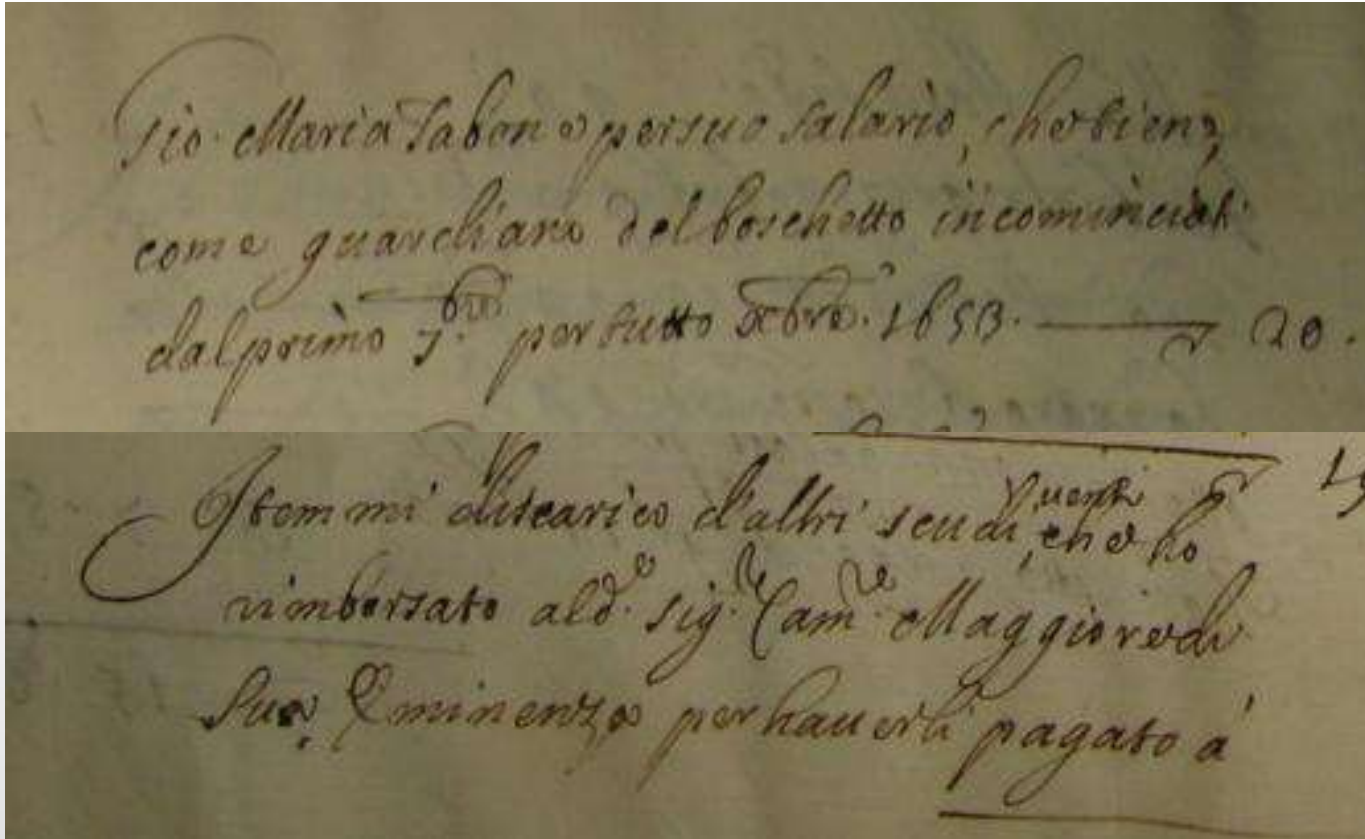 Gio. Maria Sabon e per suo salario, che tiene
come guardiano del boschetto incominciati
dal primo 7.bre per tutto Xbre. 1653. 20.
Item mi discarico d'altri scudi venti
che ho
rimborsato al d.o sig.re Cam.re Maggiore di
Sua Eminenza per haverli pagato á